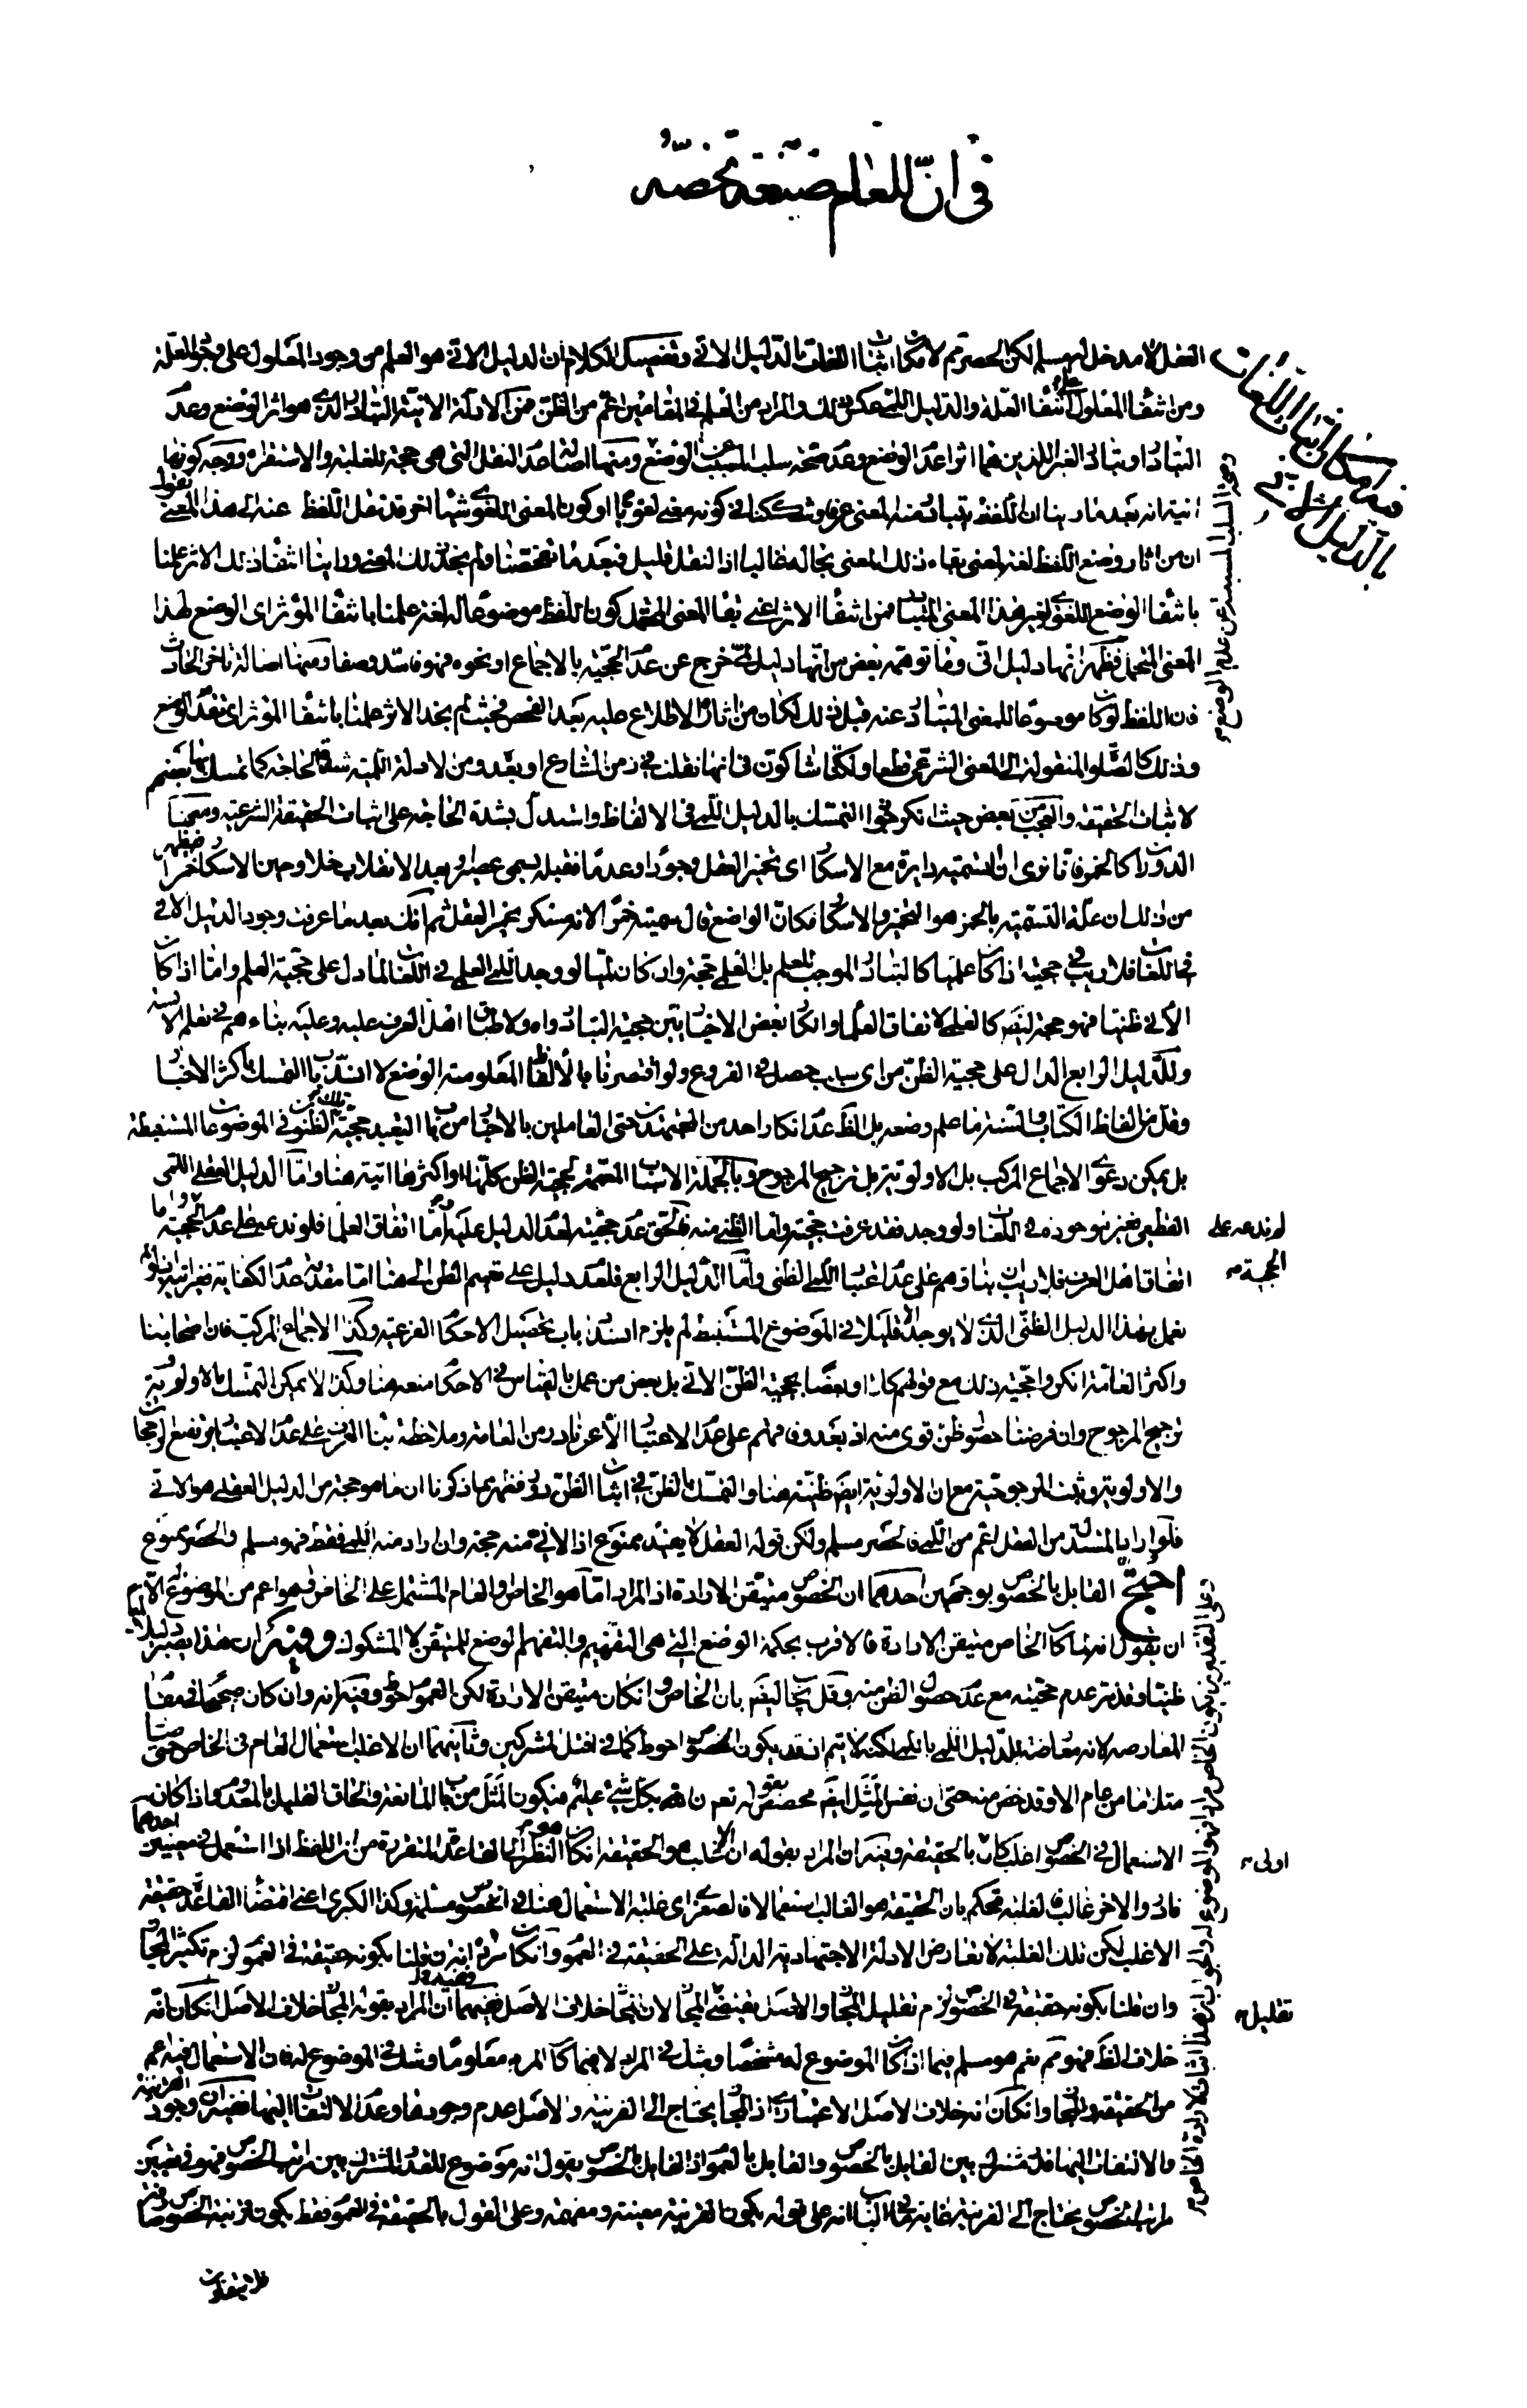 في انّ للعام صيغة تخصّه
العقل لا مدخل له مسلم لكن الحصر مم لامكان اثبات اللغات بالدليل الاني وتفصيل الكلام ان الدليل الاني هو العلم من وجود المعلول على وجود العلة
ومن انتفاء المعلول على انتفاء العلة والدليل اللمي عكس ذلك والمراد من العلم في المقامين اعم من الظن فمن الادلة الانية التبادر الذي هو اثر الوضع وعدم
التبادر او تبادر الغير اللذين هما اثرا عدم الوضع وعدم صحة سلب المسبب عن الوضع ومنها اصالة عدم النقل التي هي حجة للغلبة والاستقراء ووجه كونها
انية انه بعد ما راينا ان اللفظ يتبادر منه المعنى عرفا وشككنا في كونه معنى لغويا او كون المعنى اللغوي شيئا اخر قد نقل اللفظ عنه الى هذا المعنى نقول
ان من اثار وضع اللفظ لغة لمعنى بقاء ذلك المعنى بحاله غالبا اذ النقل قليل فبعد ما تفحصنا ولم نجد ذلك المعنى وراينا انتفاء ذلك الاثر علمنا
بانتفاء الوضع اللغوي لغير هذا المعنى المتبادر فمن انتفاء الاثر اعني بقاء المعنى المحتمل كون اللفظ موضوعا له لغة علمنا بانتفاء المؤثر اى الوضع لهذا
المعنى المحتمل فظهر انها دليل اني وما توهمه بعض من انها دليل لمي خرج عن عدم الحجية بالاجماع او نحوه فهو فاسد وصفا ومنها اصالة تاخر الحادث
فان اللفظ لو كان موضوعا للمعنى المتبادر عنه قبل ذلك لكان من اثاره الاطلاع عليه بعد الفحص فحيث لم نجد الاثر علمنا بانتفاء المؤثر اى تقدم الوضع
وذلك كالصلوة المنقولة الى المعنى الشرعي قطعا ولكنا شاكون في انها نقلت في زمن الشارع او بعده ومن الادلة اللمية شدة الحاجة كما تمسك بها بعضهم
لاثبات الحقيقة والعجب من بعض حيث انكر التمسك بالدليل اللمي في الالفاظ واستدل بشدة الحاجة على اثبات الحقيقة الشرعية ومنها
الدوران كالخمر فانا نرى ان التسمية دايرة مع الاسكار اى تخمير العقل وجودا وعدما فقبله يسمى عصيرا وبعد الانقلاب خلا وحين الاسكار خمرا فظهر
من ذلك ان علة التسمية بالخمر هو التخمير والاسكار فكان الواضع قال سميته خمرا لانه مسكر يخمر العقل ثم انك بعد ما عرفت وجود الدليل الاني
في اللغات فلا ريب في حجيته اذا كان علميا كالتبادر الموجب للعلم بل العلمي حجة وان كان لميا لو وجد اللمي العلمي في اللغات لما دل على حجية العلم واما اذا كان
الاني ظنيا فهو حجة ايضا كالعلمي لاتفاق العلماء وانكار بعض الاخباريين حجية التبادر واه ولاطباق اهل العرف عليه وعليه بناءهم في تعلم الالسنة
وللدليل الرابع الدال على حجية الظن من اى سبب حصل في الفروع ولو اقتصرنا بالالفاظ المعلومة الوضع لانسد باب التمسك باكثر الاخبار
وقل من الفاظ الكتاب والسنة ما علم وضعه بل الظ عدم انكار احد من المجتهدين حتى العاملين بالاخبار من باب التعبد حجية تلك الظنون في الموضوعات المستنبطة
بل يمكن دعوى الاجماع المركب بل الاولوية بل ترجيح المرجوح وبالجملة الاسباب المعممة لحجية الظن كلها او اكثرها اتية هنا واما الدليل العقلي اللمي
القطعي فغير موجود في اللغات ولو وجد فقد عرفت حجيته واما الظني منه فالحق عدم حجيته لعدم الدليل عليه اما اتفاق العلماء فلو ندعه على عدم الحجية واما
اتفاق اهل العرف فلا ريب ان بناءهم على عدم اعتبار اللمي الظني واما الدليل الرابع فلعدم دليل على تعميم الظن الى هنا اما مقدمة عدم الكفاية فغير اتية اذ لو لم
نعمل بهذا الدليل الظني الذي لا يوجد الا قليلا في الموضوع المستنبط لم يلزم انسداد باب تحصيل الاحكام الفرعية وكذا الاجماع المركب فان اصحابنا
واكثر العامة انكروا حجية ذلك مع قولهم كلا او بعضا بحجية الظن الاني بل بعض من عمل بالقياس في الاحكام منعه هنا وكذا لا يمكن التمسك بالاولوية
ترجيح المرجوح وان فرضنا حصول ظن قوي منه اذ بعد وفاقهم على عدم الاعتبار الا عن نادر من العامة وملاحظة بناء العرف على عدم الاعتبار يرتفع الرجحان
والاولوية ويثبت المرجوحية مع ان الاولوية ايض ظنية هنا والتمسك بالظن في اثبات الظن دور فظهر بما ذكرنا ان ما هو حجة من الدليل العقلي هو الاني
فلو اراد المستدل من العقل اعم من اللمي فالحصر مسلم ولكن قوله العقل لا يفيد ممنوع اذ الاني منه حجة وان اراد منه اللمي فقط فهو مسلم والحصر ممنوع
احتج القايل بالخصوص بوجهين احدهما ان الخصوص متيقن الارادة اذ المراد اما هو الخاص والعام المشتمل على الخاص فهو اعم من الموضوع
ان يقول انه لما كان الخاص متيقن الارادة فالاقرب بحكمة الوضع التي هي التفهيم والتفهم الوضع للمتيقن لا المشكوك وفيه ان هذا يصير دليلا لميا
ظنيا وقد مر عدم حجيته مع عدم حصول الظن منه وقد يجاب ايضا بان الخاص وان كان متيقن الارادة لكن العموم احوط وفيه انه وان كان صحيحا في مقام
المعارضة لانه معارضة للدليل اللمي باللمي لكنه لا يتم اذ قد يكون الخصوص احوط كما في اقتل المشركين وثانيهما ان الاغلب استعمال العام في الخاص حتى صار
مثلا ما من عام الا وقد خص منه حتى ان نفس المثل ايض مخصص بقوله تعم ان الله بكل شيء عليم فيكون المثل من باب المبالغة والحاق القليل بالمعدوم واذا كان
الاستعمال في الخصوص اغلب كان بالحقيقة وفيه ان المراد بقوله ان الاغلب هو الحقيقة ان كان النظر الى القاعدة المتقررة من ان اللفظ اذا استعمل في معنيين احدهما
نادر والاخر غالب فالغلبة تحكم بان الحقيقة هو الغالب استعمالا فالصغرى اى غلبة الاستعمال هنا في الخصوص مسلمة وكذا الكبرى اعني اقتضاء القاعدة حقيقة
الاغلب لكن تلك الغلبة لا تعارض الادلة الاجتهادية الدالة على الحقيقة في العموم وان كان مراده انه ان قلنا بكونه حقيقة في العموم لزم تكثير المجاز
وان قلنا بكونه حقيقة في الخصوص لزم تقليل المجاز والاصل يقتضي المجاز لان المجاز خلاف الاصل ففيه ان المراد بقوله المجاز خلاف الاصل ان كان انه
خلاف الظ فهو مم نعم هو مسلم فيما اذا كان الموضوع له مشخصا ويشك في المراد لا فيما كان المراد معلوما وشك في الموضوع له فان الاستعمال فيه اعم
من الحقيقة والمجاز وان كان انه خلاف الاصل الاعتباري اذ المجاز يحتاج الى القرينة والاصل عدم وجودها وعدم الالتفات اليها ففيه ان وجود القرينة
والالتفات اليها قدر مشترك بين القايل بالخصوص والقايل بالعموم اذ القايل بالخصوص يقول انه موضوع للقدر المشترك بين مراتب الخصوص فهو في تعيين
مراتب الخصوص يحتاج الى القرينة غاية ما في الباب انه على قوله يكون القرينة معينة ومفهمة وعلى القول بالحقيقة في العموم فقط يكون قرينة الخصوص صارفة
فلا يتفاوت
في امكان اثبات اللغات
بالدليل
وصحة السلب المسببة عن عدم الوضع
لم ندعه على
الحجية
اولى
تقليل